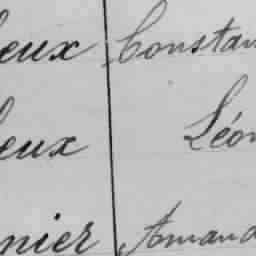 eux Constan
eux Léon
nier Amand